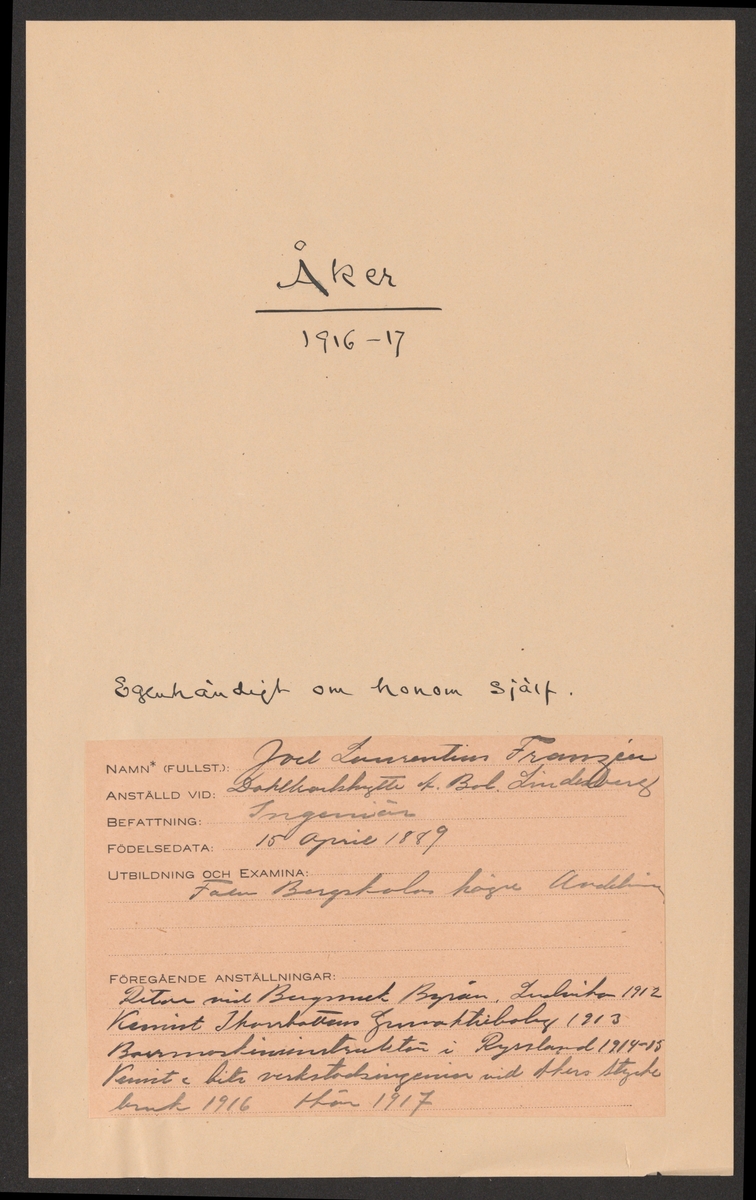 Åker
1916-17
Egenhändigt om honom själf.
NAMN* (FULLST.): Joel Laurentius Franzén
ANSTÄLLD VID: Dahlkarlshytte A. Bol. Lindesberg
BEFATTNING: Ingeniör
FÖDELSEDATA: 15 April 1889
UTBILDNING OCH EXAMINA:
Falu Bergskolas högre Avdelning
FÖREGÅENDE ANSTÄLLNINGAR:
Ritare vid Byrån, Ludvika 1912
Kemist Gruvaktiebolag 1913
Borrmaskininstruktör i Ryssland 1914-15
Kemist & bitr verkstadsingeniör vid Åkers Stycke
bruk 1916 Här 1917